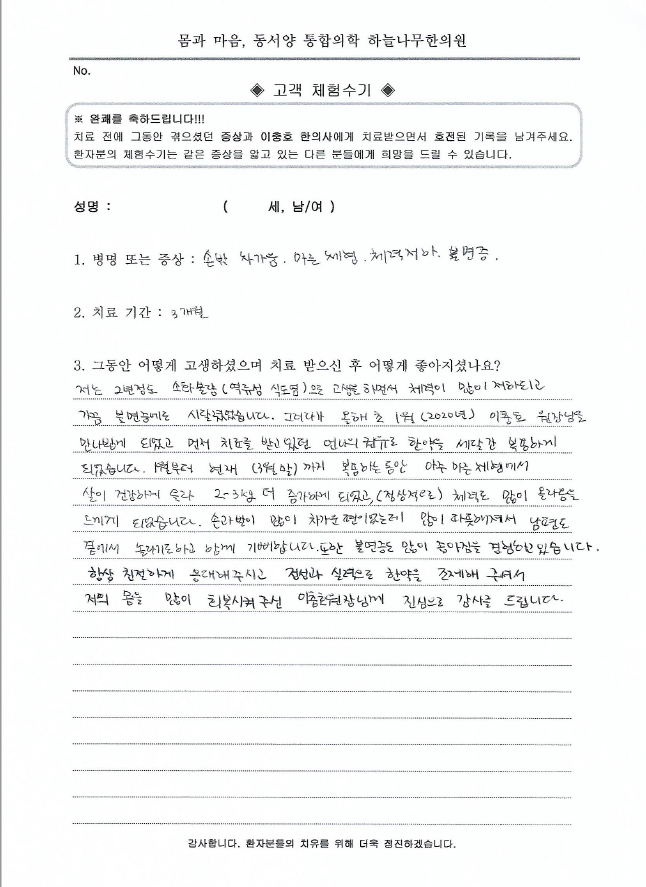 몸과 마음, 동서양 통합의학 하늘나무한의원
No.
◈ 고객 체험수기 ◈
※ 완쾌를 축하드립니다!!!
치료 전에 그동안 겪으셨던 증상과 이충호 한의사에게 치료받으면서 호전된 기록을 남겨주세요.
환자분의 체험수기는 같은 증상을 앓고 있는 다른 분들에게 희망을 드릴 수 있습니다.
성명 : ( 세, 남/여 )
1. 병명 또는 증상 : 손발 차가움. 마른 체형. 체력저하. 불면증.
2. 치료 기간 : 3개월
3. 그동안 어떻게 고생하셨으며 치료 받으신 후 어떻게 좋아지셨나요?
저는 2년정도 소화불량(역류성 식도염)으로 고생을 하면서 체력이 많이 저하되고
가끔 불면증에도 시달렸었습니다. 그러다가 올해 초 1월(2020년) 이충호 원장님을
만나뵙게 되었고 먼저 치료를 받고 있던 언니의 권유로 한약을 세달간 복용하게
되었습니다. 1월부터 현재 (3월말)까지 복용하는 동안 아주 마른 체형에서
살이 건강하게 올라 2~3kg 더 증가하게 되었고,(정상적으로) 체력도 많이 올라옴을
느끼게 되었습니다. 손과 발이 많이 차가운 편이었는데 많이 따뜻해져서 남편도
곁에서 놀라기도하고 함께 기뻐합니다. 또한 불면증도 많이 좋아짐을 경험하고 있습니다.
항상 친절하게 응대해주시고 정성과 실력으로 한약을 조제해 주셔서
저의 몸을 많이 회복시켜 주신 이충호원장님께 진심으로 감사를 드립니다.
감사합니다. 환자분들의 치유를 위해 더욱 정진하겠습니다.